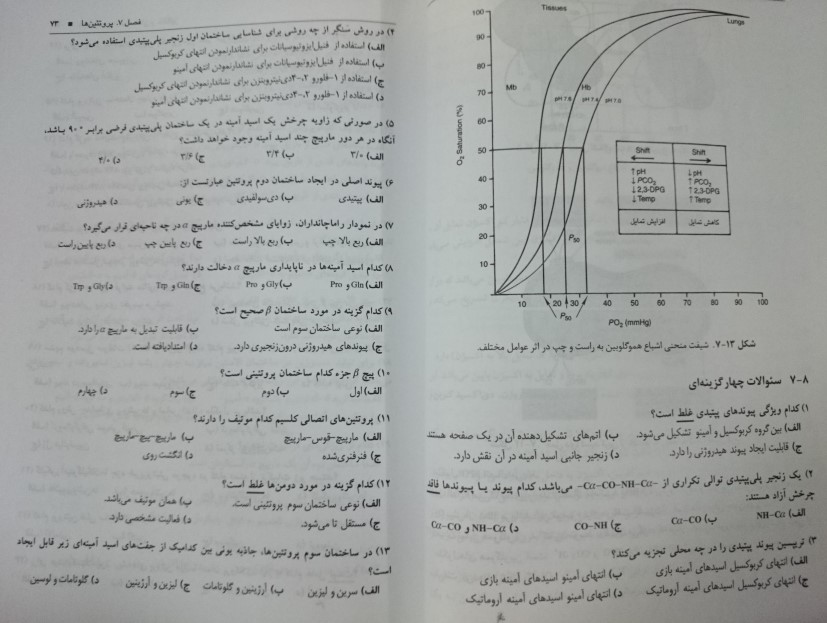 Tissues
Lungs
100
90
80
70
60
50
40
30
20
10
O₂ Saturation (%)
Mb
Hb
pH 7.6 pH 7.4 pH 7.0
P₅₀
10 20 30 40 50 60 70 80 90 100
P₅₀
PO₂ (mmHg)
Shift Shift
↑pH ↓pH
↓PCO₂ ↑PCO₂
↓2,3-DPG ↑2,3-DPG
↓Temp ↑Temp
افزایش تمایل کاهش تمایل
شکل ۱۳-۷. شیفت منحنی اشباع هموگلوبین به راست و چپ در اثر عوامل مختلف.
۷-۸ سئوالات چهارگزینه‌ای
۱) کدام ویژگی پیوندهای پپتیدی غلط است؟
الف) بین گروه کربوکسیل و آمینو تشکیل می‌شود. ب) اتم‌های تشکیل‌دهنده آن در یک صفحه هستند
ج) قابلیت ایجاد پیوند هیدروژنی را دارد. د) زنجیر جانبی اسید آمینه در آن نقش دارد.
۲) یک زنجیر پلی‌پپتیدی توالی تکراری از -Cα-CO-NH-Cα- می‌باشد، کدام پیوند یا پیوندها فاقد
چرخش آزاد هستند:
الف) NH-Cα ب) Cα-CO ج) CO-NH د) NH-Cα و Cα-CO
۳) تریپسین پیوند پپتیدی را در چه محلی تجزیه می‌کند؟
الف) انتهای کربوکسیل اسیدهای آمینه بازی ب) انتهای آمینو اسیدهای آمینه بازی
ج) انتهای کربوکسیل اسیدهای آمینه آروماتیک د) انتهای آمینو اسیدهای آمینه آروماتیک
فصل ۷. پروتئین‌ها ■ ۷۳
۴) در روش سَنگِر از چه روشی برای شناسایی ساختمان اول زنجیر پلی‌پپتیدی استفاده می‌شود؟
الف) استفاده از فنیل‌ایزوتیوسیانات برای نشاندارنمودن انتهای کربوکسیل
ب) استفاده از فنیل‌ایزوتیوسیانات برای نشاندارنمودن انتهای آمینو
ج) استفاده از ۱-فلورو ۲،-۴دی‌نیتروبنزن برای نشاندارنمودن انتهای کربوکسیل
د) استفاده از ۱-فلورو ۲،-۴دی‌نیتروبنزن برای نشاندارنمودن انتهای آمینو
۵) در صورتی که زاویه چرخش یک اسید آمینه در یک ساختمان پلی‌پپتیدی فرضی برابر ۹۰° باشد،
آنگاه در هر دور مارپیچ چند اسید آمینه وجود خواهد داشت؟
الف) ۳/۰ ب) ۳/۴ ج) ۳/۶ د) ۴/۰
۶) پیوند اصلی در ایجاد ساختمان دوم پروتئین عبارتست از:
الف) پپتیدی ب) دی‌سولفیدی ج) یونی د) هیدروژنی
۷) در نمودار راماچانداران، زوایای مشخص‌کننده مارپیچ α در چه ناحیه‌ای قرار می‌گیرد؟
الف) ربع بالا چپ ب) ربع بالا راست ج) ربع پایین چپ د) ربع پایین راست
۸) کدام اسید آمینه‌ها در ناپایداری مارپیچ α دخالت دارند؟
الف) Gln و Pro ب) Gly و Pro ج) Gln و Trp د) Gly و Trp
۹) کدام گزینه در مورد ساختمان β صحیح است؟
الف) نوعی ساختمان سوم است ب) قابلیت تبدیل به مارپیچ α را دارد.
ج) پیوندهای هیدروژنی درون‌زنجیری دارد. د) امتدادیافته است.
۱۰) پیچ β جزء کدام ساختمان پروتئینی است؟
الف) اول ب) دوم ج) سوم د) چهارم
۱۱) پروتئین‌های اتصالی کلسیم کدام موتیف را دارند؟
الف) مارپیچ-قوس-مارپیچ ب) مارپیچ-پیچ-مارپیچ
ج) فنرفنری‌شده د) انگشت روی
۱۲) کدام گزینه در مورد دومن‌ها غلط است؟
الف) نوعی ساختمان سوم پروتئینی است. ب) همان موتیف می‌باشد.
ج) مستقل تا می‌شود. د) فعالیت مشخصی دارد.
۱۳) در ساختمان سوم پروتئین‌ها، جاذبه یونی بین کدامیک از جفت‌های اسید آمینه‌ای زیر قابل ایجاد
است؟
الف) سرین و لیزین ب) آرژینین و گلوتامات ج) لیزین و آرژینین د) گلوتامات و لوسین